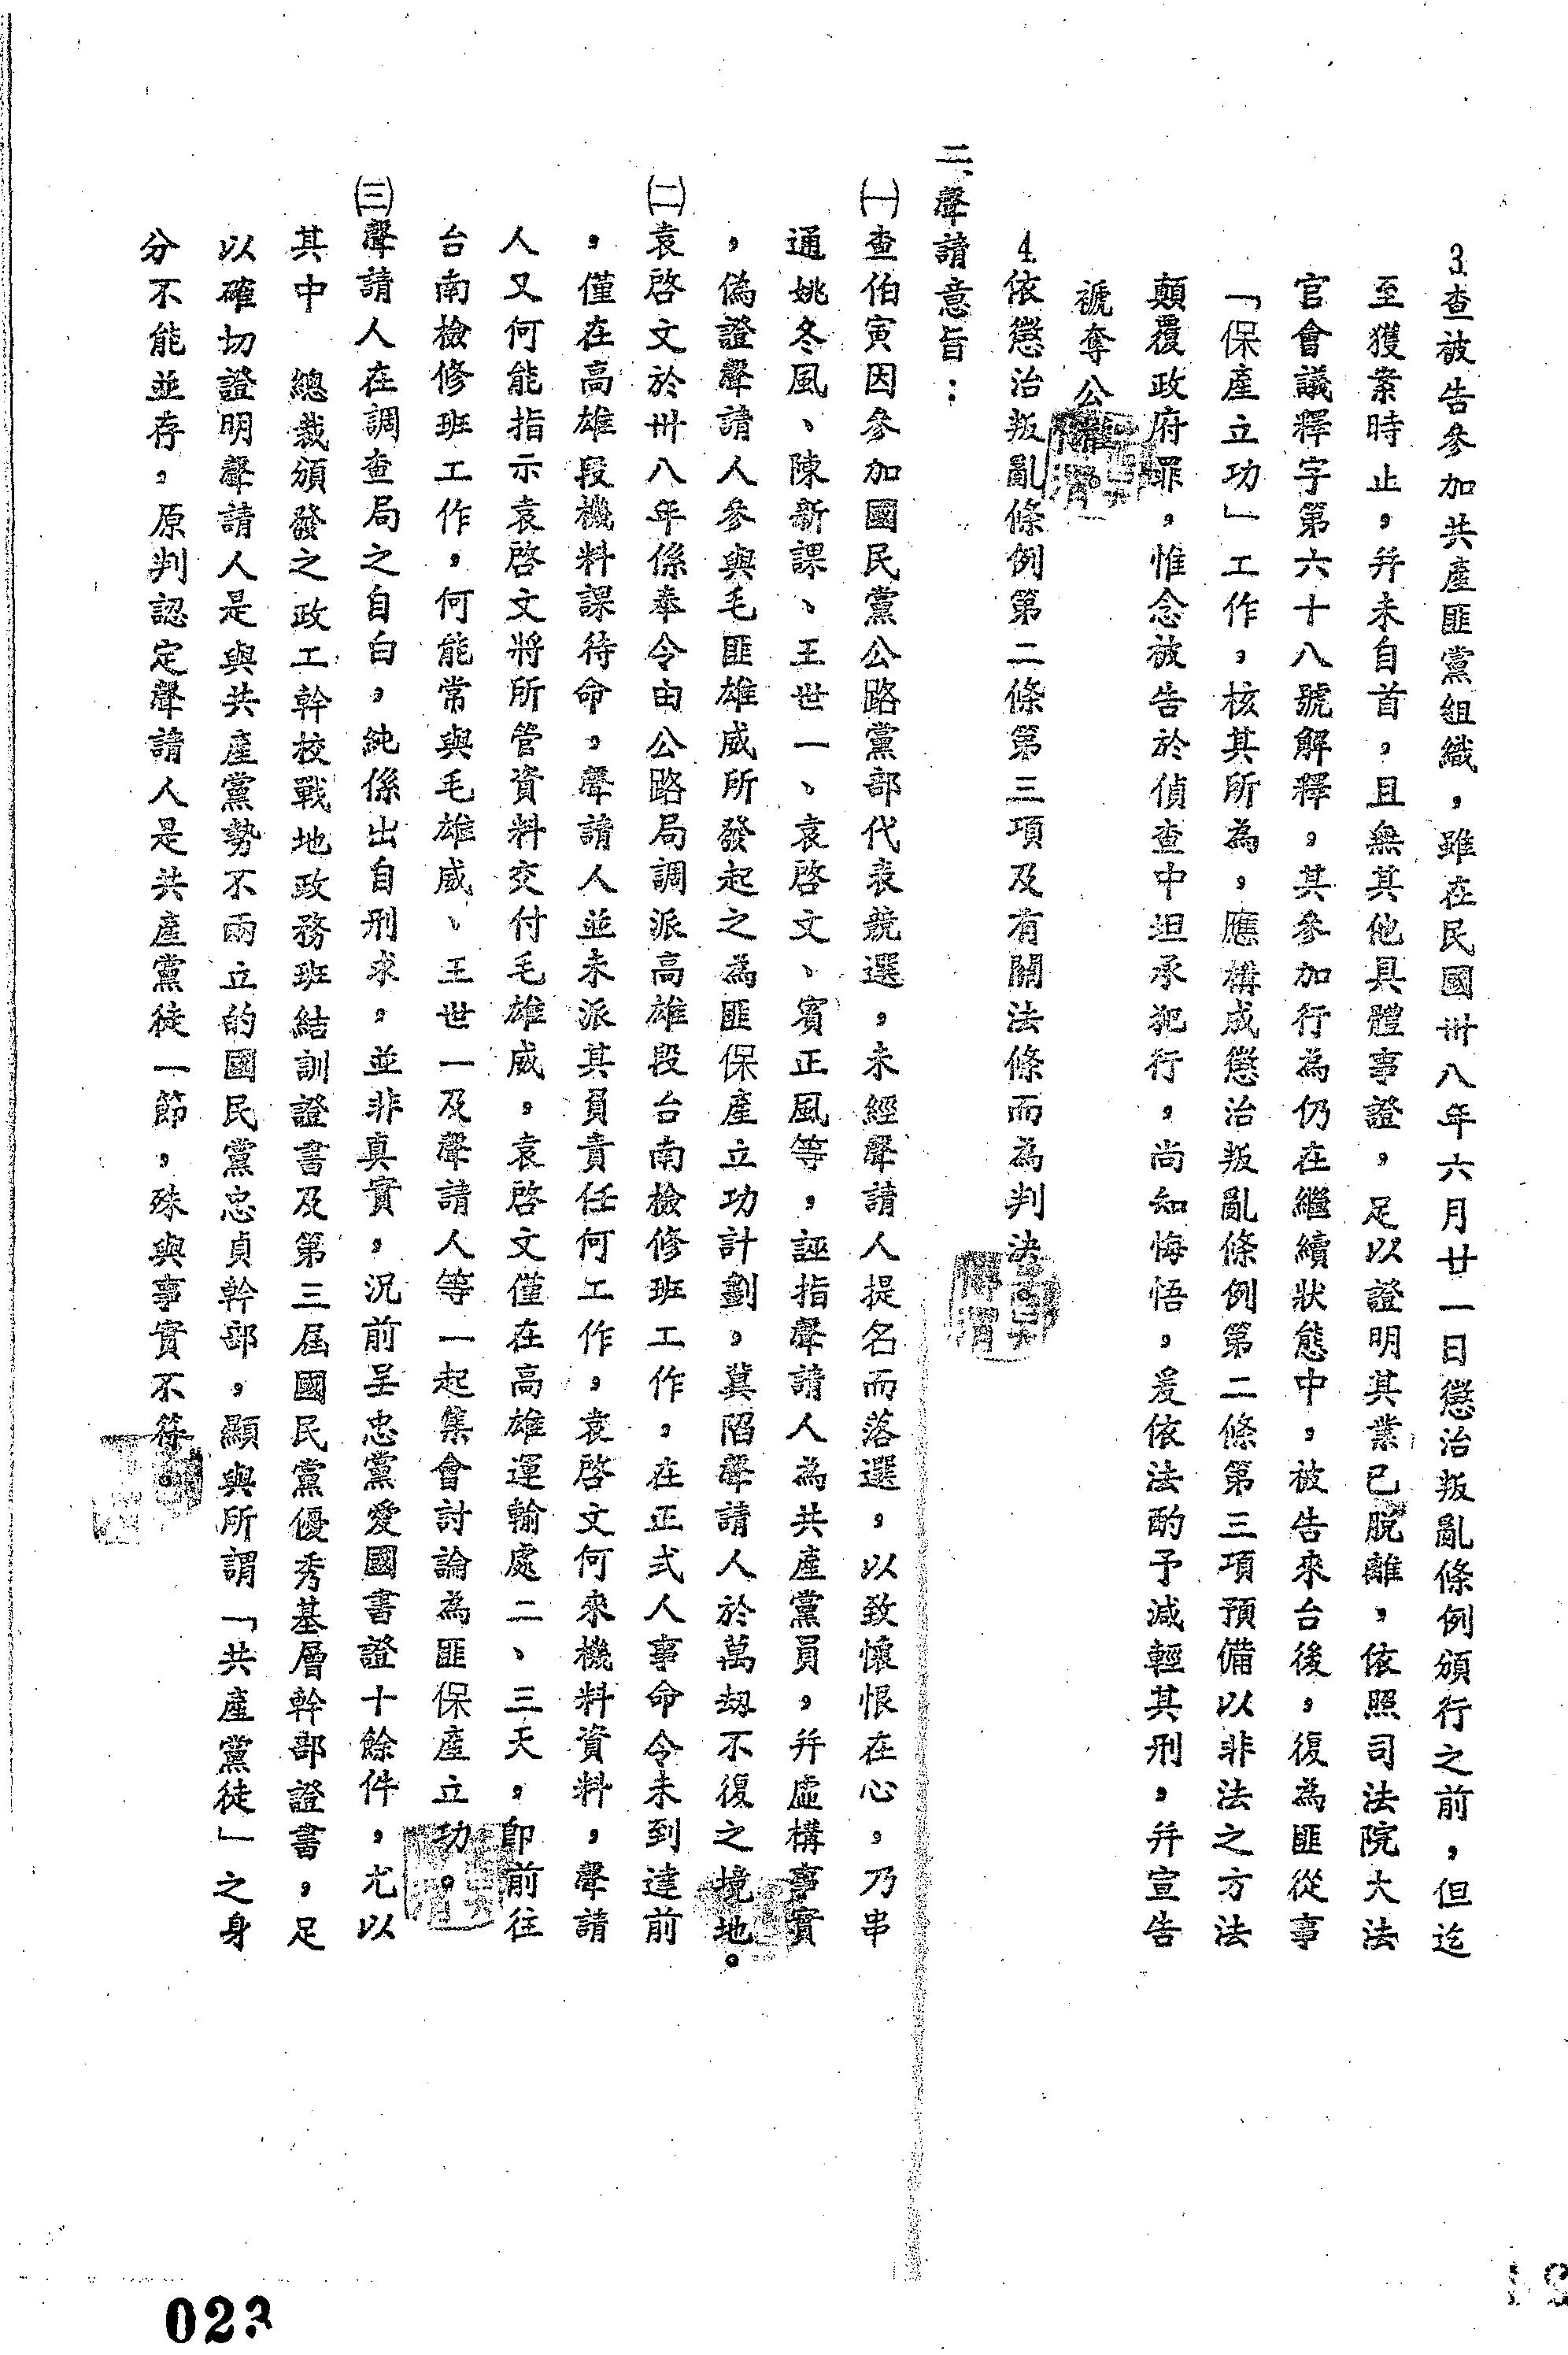 3.查被告參加共產匪黨組織，雖在民國卅八年六月廿一日懲治叛亂條例頒行之前，但迄
至獲案時止，幷未自首，且無其他具體事證，足以證明其業已脫離，依照司法院大法
官會議釋字第六十八號解釋，其參加行為仍在繼續狀態中，被告來台後，復為匪從事
「保產立功」工作，核其所為，應構成懲治叛亂條例第二條第三項預備以非法之方法
顛覆政府罪，惟念被告於偵查中坦承犯行，尚知悔悟，爰依法酌予減輕其刑，幷宣告
褫奪公權。
4.依懲治叛亂條例第二條第三項及有關法條而為判決。
二、聲請意旨：
㈠查伯寅因參加國民黨公路黨部代表競選，未經聲請人提名而落選，以致懷恨在心，乃串
通姚冬風、陳新課、王世一、袁啓文、賓正風等，誣指聲請人為共產黨員，幷虛構事實
，偽證聲請人參與毛匪雄威所發起之為匪保產立功計劃，冀陷聲請人於萬刼不復之境地。
㈡袁啓文於卅八年係奉令由公路局調派高雄段台南檢修班工作，在正式人事命令未到達前
，僅在高雄段機料課待命，聲請人並未派其員責任何工作，袁啓文何來機料資料，聲請
人又何能指示袁啓文將所管資料交付毛雄威，袁啓文僅在高雄運輸處二、三天，卽前往
台南檢修班工作，何能常與毛雄威、王世一及聲請人等一起集會討論為匪保產立功。
㈢聲請人在調查局之自白，純係出自刑求，並非真實，況前呈忠黨愛國書證十餘件，尤以
其中　總裁頒發之政工幹校戰地政務班結訓證書及第三屆國民黨優秀基層幹部證書，足
以確切證明聲請人是與共產黨勢不兩立的國民黨忠貞幹部，顯與所謂「共產黨徒」之身
分不能並存，原判認定聲請人是共產黨徒一節，殊與事實不符。
023